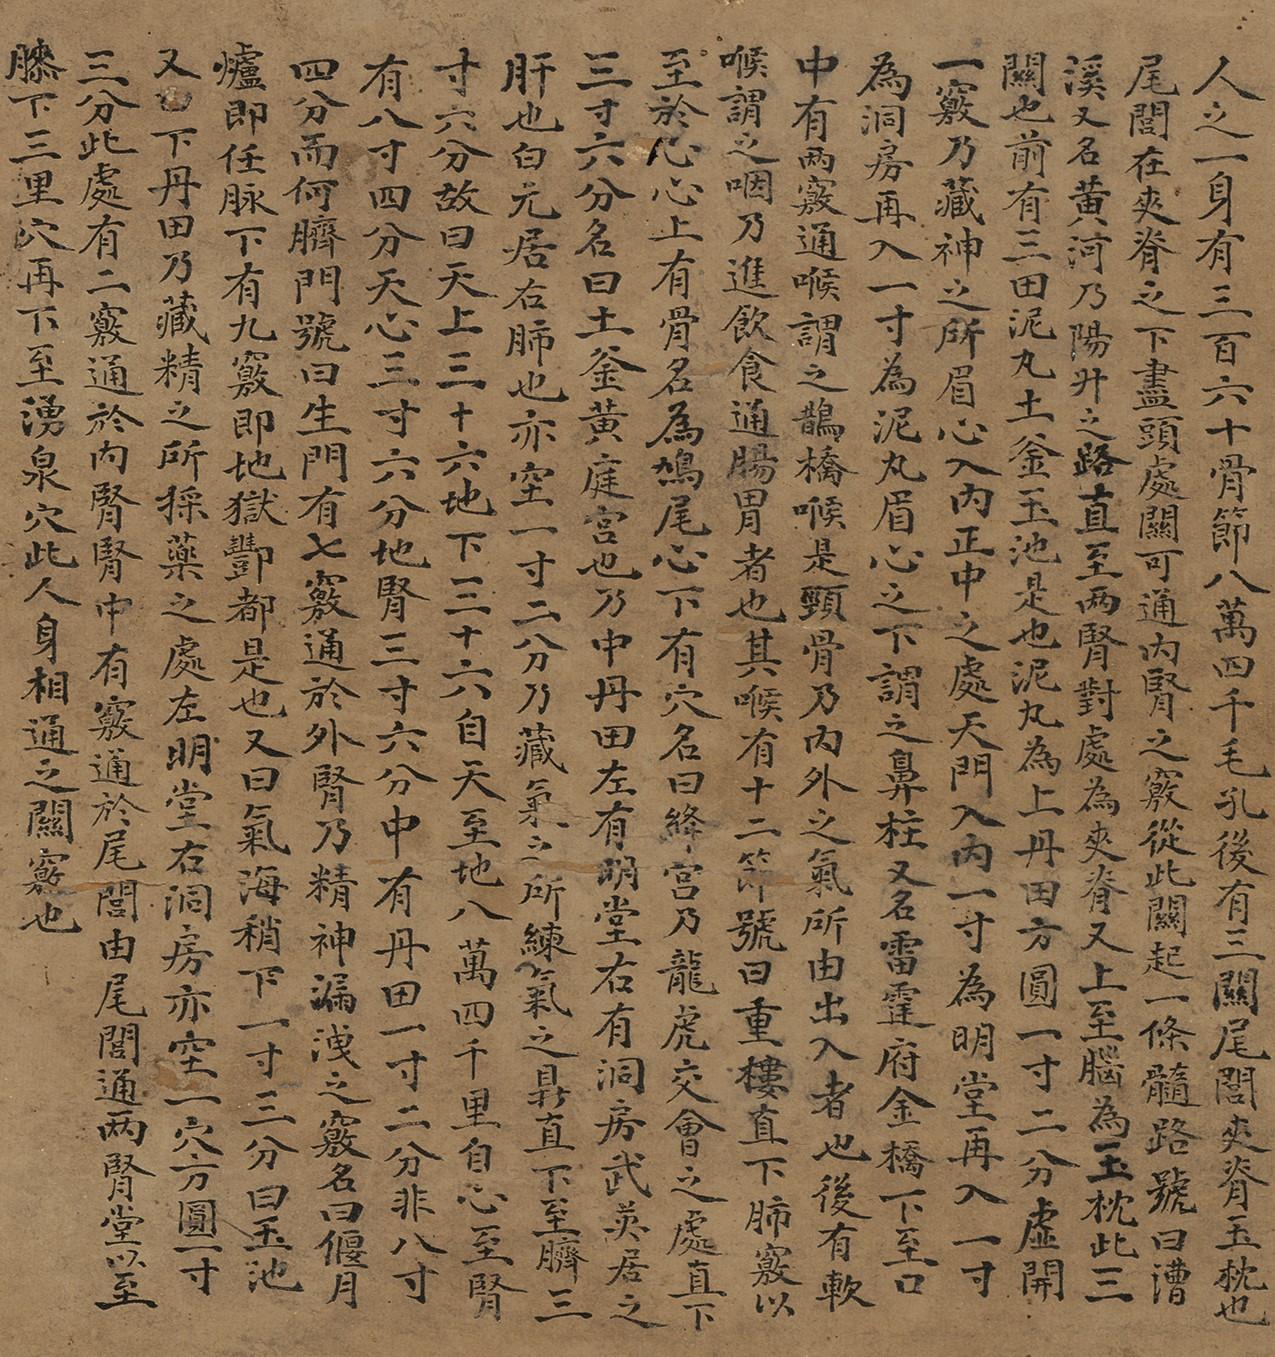 人之一身有三百六十骨節八萬四千毛孔後有三關尾閭夾脊玉枕也
尾閭在夾脊之下盡頭處關可通内腎之竅從此關起一條髓路號曰漕
溪又名黄河乃陽升之路直至两腎對處為夾脊又上至腦為玉枕此三
關也前有三田泥丸土釜玉池是也泥丸為上丹田方圓一寸二分虚開
一竅乃藏神之所眉心入内正中之處天門入内一寸為明堂再入一寸
為洞房再入一寸為泥丸眉心之下謂之鼻柱又名雷霆府金橋下至口
中有两竅通喉謂之鵲橋喉是頸骨乃内外之氣所由出入者也後有軟
喉謂之咽乃進飲食通腸胃者也其喉有十二節號曰重樓直下肺竅以
至於心心上有骨名為鳩尾心下有穴名曰絳宫乃龍虎交會之處直下
三寸六分名曰土釜黄庭宫也乃中丹田左有明堂右有洞房武英居之
肝也白元居右肺也亦空一寸二分乃藏氣之所練氣之鼎直下至臍三
寸六分故曰天上三十六地下三十六自天至地八萬四千里自心至腎
有八寸四分天心三寸六分地腎三寸六分中有丹田一寸二分非八寸
四分而何臍門號曰生門有七竅通於外腎乃精神漏洩之竅名曰偃月
爐即任脉下有九竅即地獄酆都是也又曰氣海稍下一寸三分曰玉池
又曰下丹田乃藏精之所採藥之處左明堂右洞房亦空一穴方圓一寸
三分此處有二竅通於内腎腎中有竅通於尾閭由尾閭通两腎堂以至
膝下三里穴再下至湧泉穴此人身相通之關竅也